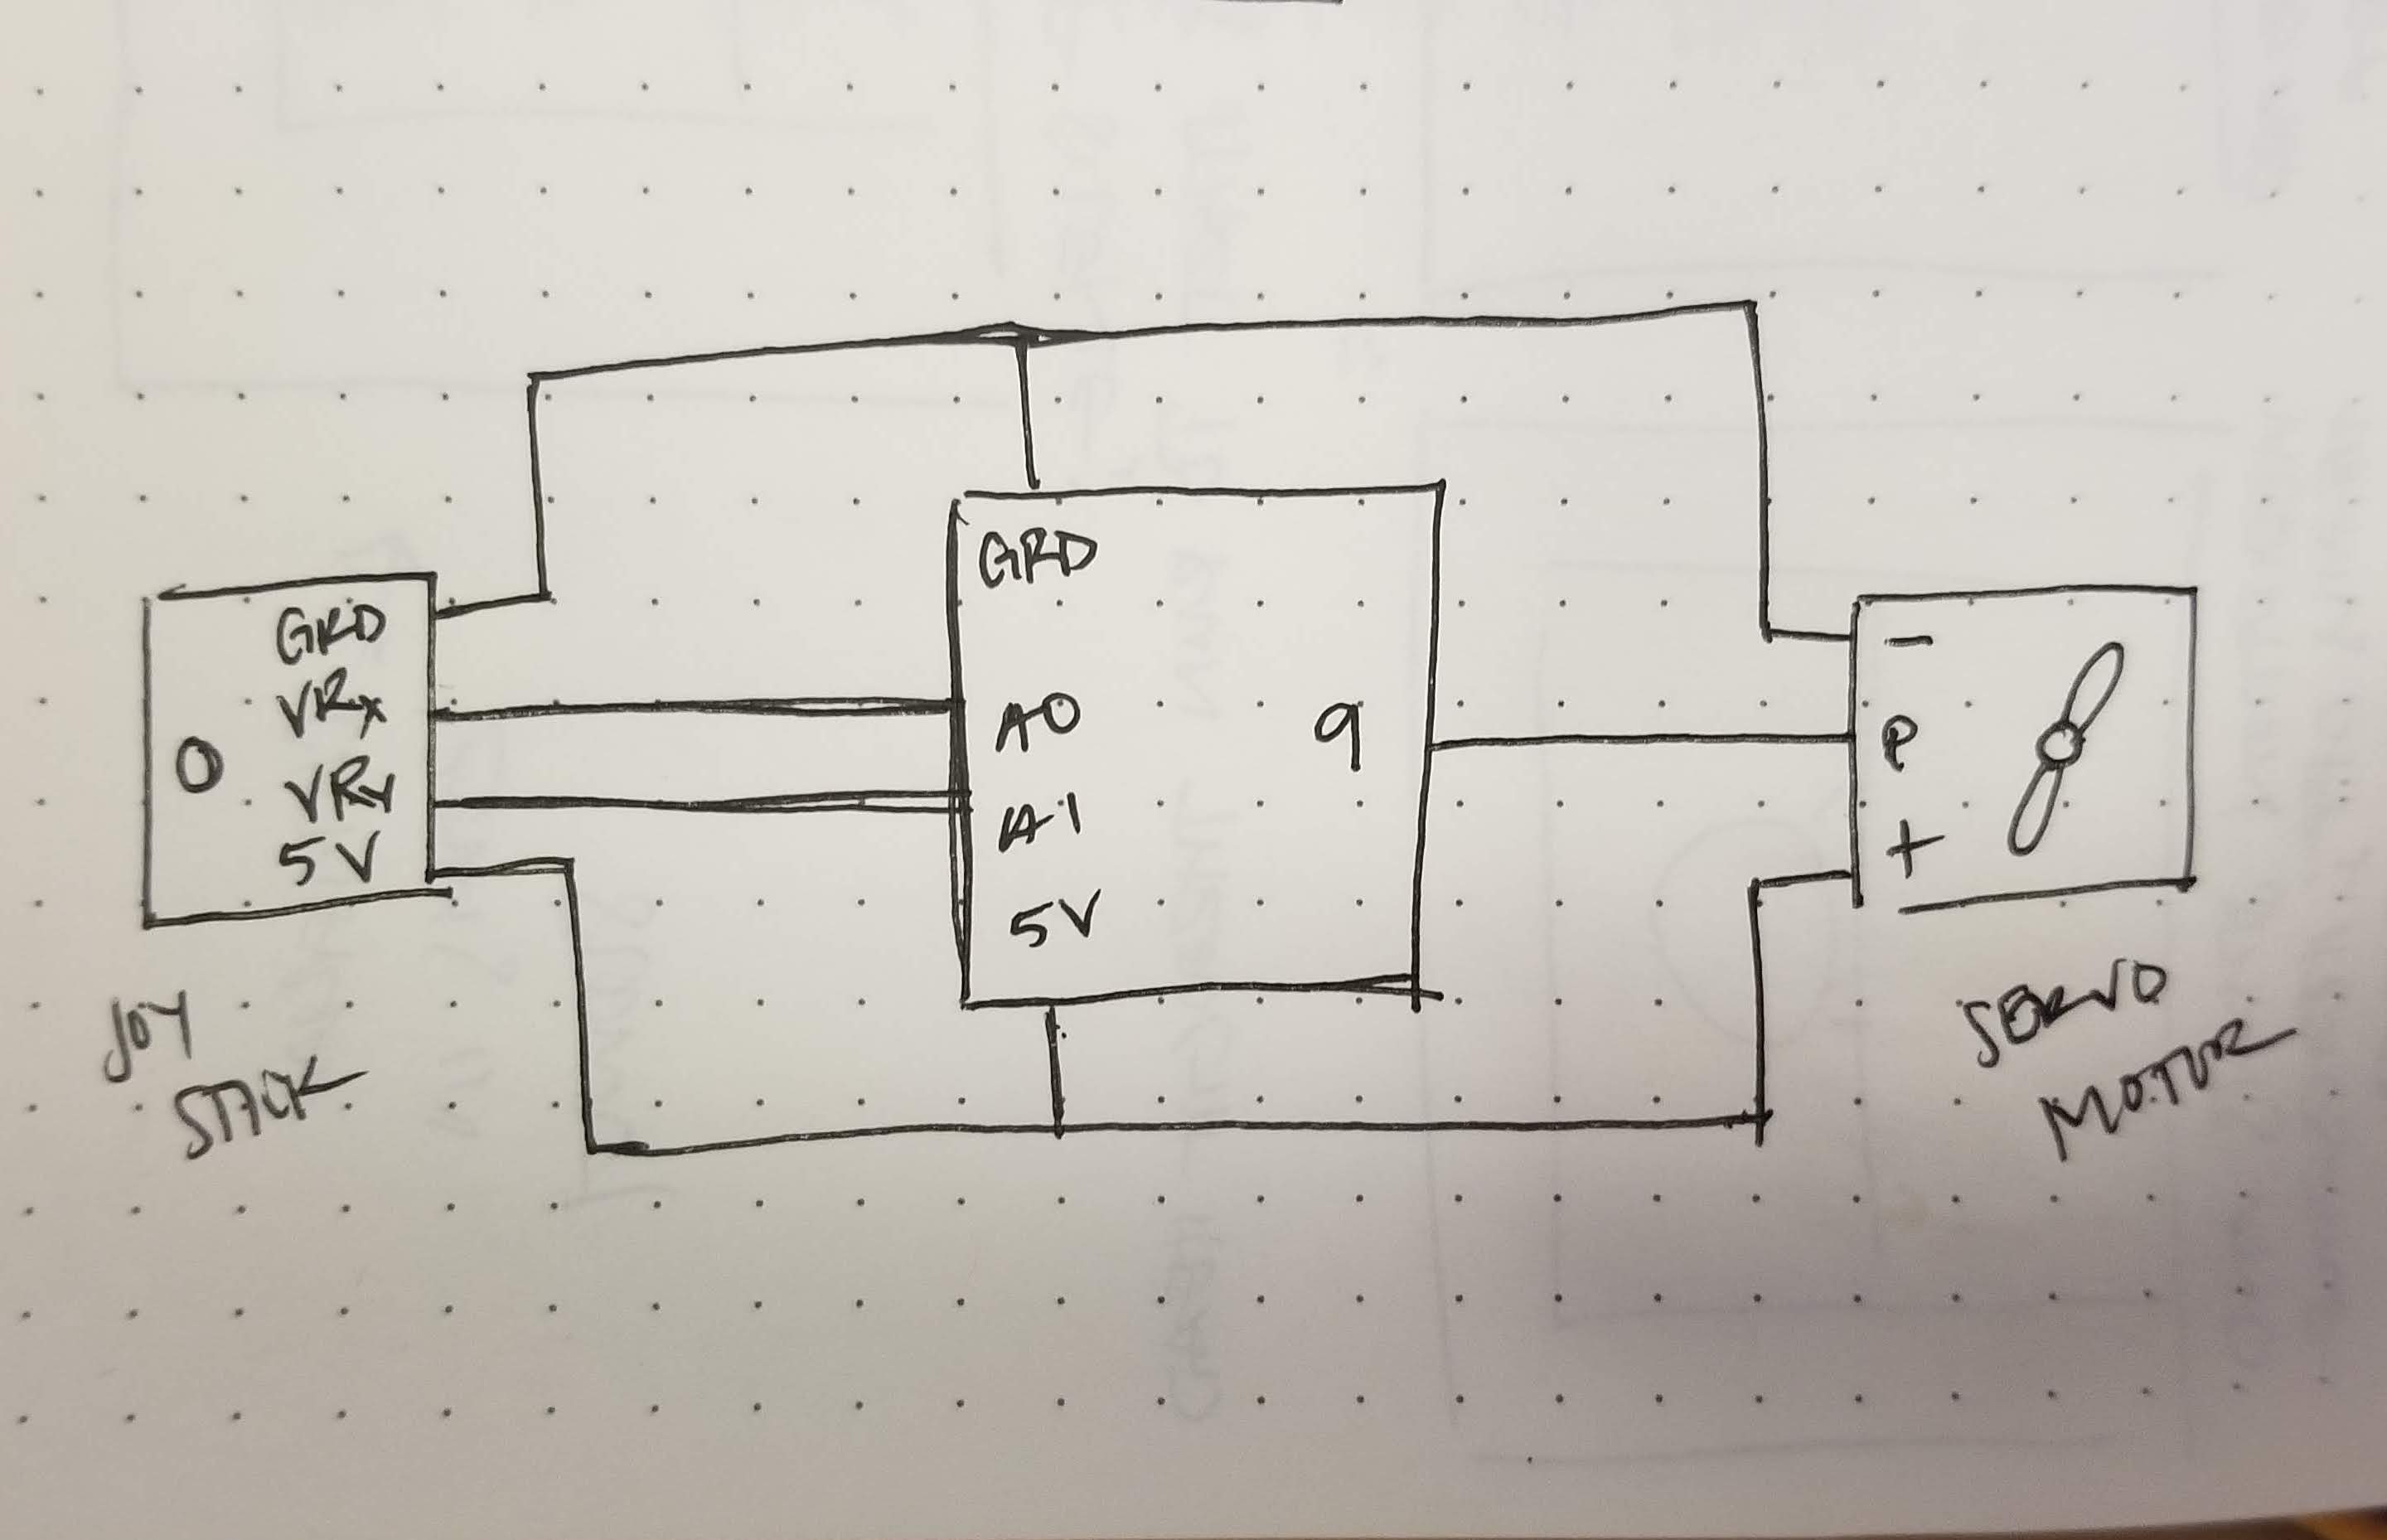 GRD
VRx
VRy
5V
O
JOY
STICK
GRD
A0
A1
5V
9
-
P
+
SERVO
MOTOR